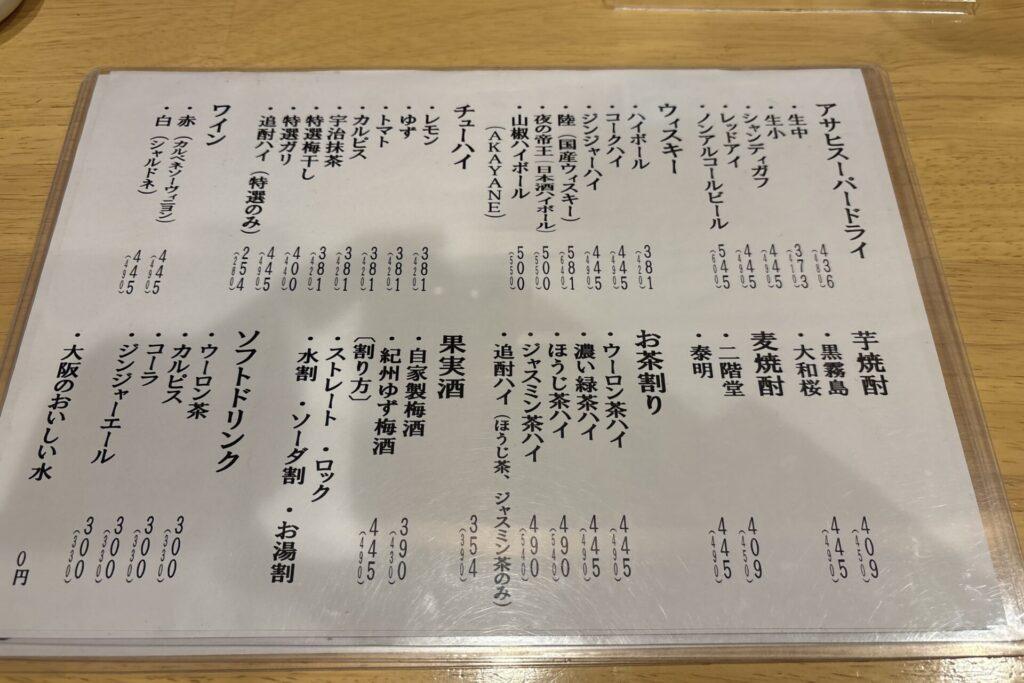 アサヒスーパードライ
・生中 436(480)
・生小 373(410)
・シャンディガフ 445(490)
・レッドアイ 445(490)
・ノンアルコールビール 545(600)
ウィスキー
・ハイボール 381(420)
・コークハイ 445(490)
・ジンジャーハイ 445(490)
・陸(国産ウィスキー) 581(640)
・夜の帝王(日本酒ハイボール) 500(550)
・山椒ハイボール 500(550)
(AKAYANE)
チューハイ
・レモン 381(420)
・ゆず 381(420)
・トマト 381(420)
・カルピス 381(420)
・宇治抹茶 381(420)
・特選梅干し 400(440)
・特選ガリ 445(490)
・追酎ハイ(特選のみ) 254(280)
ワイン
・赤(カルベネソーヴィニヨン) 445(490)
・白(シャルドネ) 445(490)
芋焼酎
・黒霧島 409(450)
・大和桜 445(490)
麦焼酎
・二階堂 409(450)
・泰明 445(490)
お茶割り
・ウーロン茶ハイ 445(490)
・濃い緑茶ハイ 445(490)
・ほうじ茶ハイ 490(540)
・ジャスミン茶ハイ 490(540)
・追酎ハイ(ほうじ茶、ジャスミン茶のみ) 354(390)
果実酒
・自家製梅酒 390(430)
・紀州ゆず梅酒 445(490)
〔割り方〕
・ストレート ・ロック
・水割 ・ソーダ割 ・お湯割
ソフトドリンク
・ウーロン茶 300(330)
・カルピス 300(330)
・コーラ 300(330)
・ジンジャーエール 300(330)
・大阪のおいしい水 0円